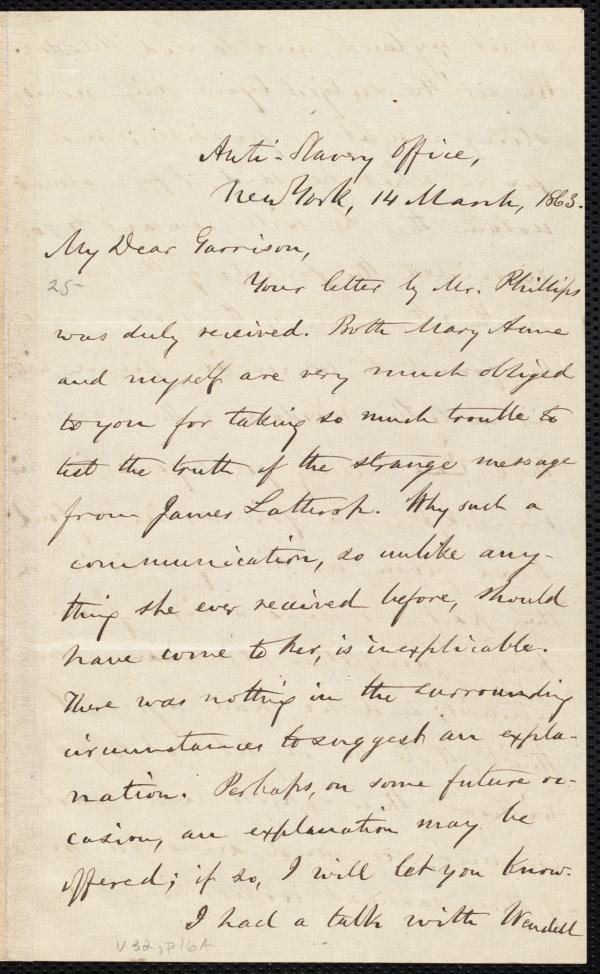 Anti-Slavery Office,
New York, 14 March, 1863.
My Dear Garrison,
25-
Your letter by Mr. Phillips
was duly received. Both Mary Anne
and myself are very much obliged
to you for taking so much trouble to
test the truth of the strange message
from James Lathrop. Why such a
communication, so unlike any-
thing she ever received before, should
have come to her, is inexplicable.
There was nothing in the surrounding
circumstances to suggest an expla-
nation. Perhaps, on some future oc-
casion, an explanation may be
offered; if so, I will let you know.
I had a talk with Wendell
V 32, p16A